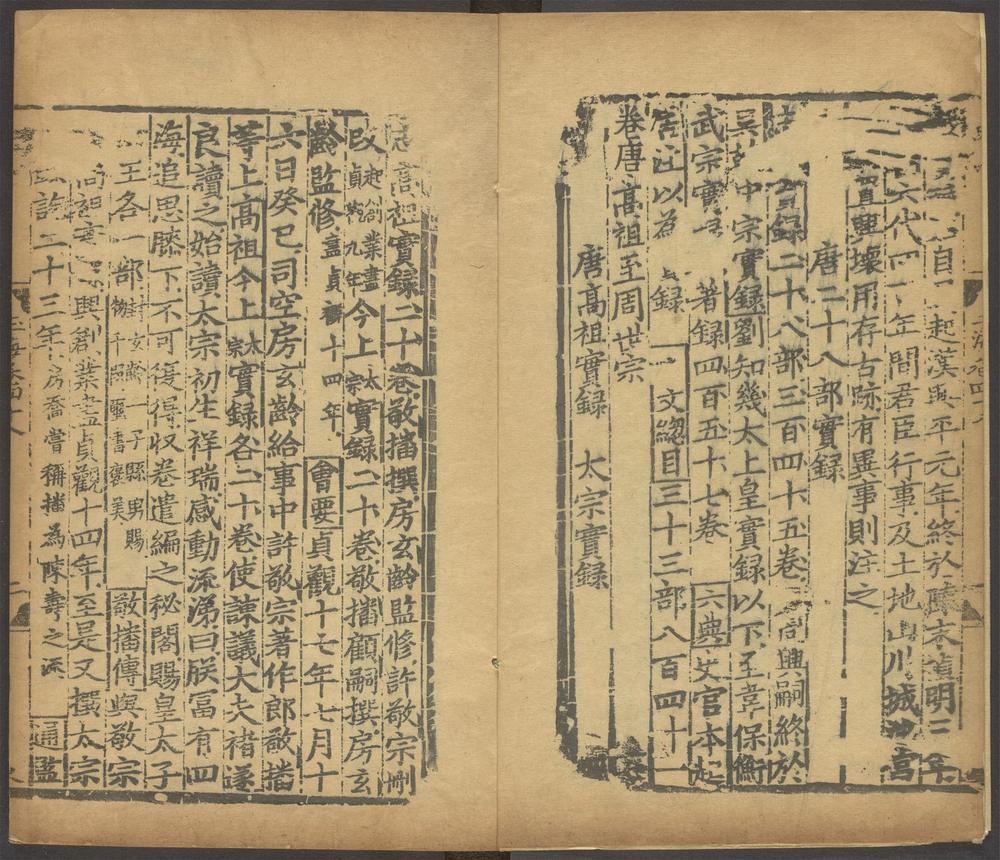 自起漢興平元年終於陳末禎明三年
六代四年間君臣行事及土地山川城宮
置興壞用存古跡有異事則注之
唐二十八部實錄
實錄二十八部三百四十五卷周興嗣終於
吳中宗實錄劉知幾太上皇實錄以下至韋保衡
武宗實著錄四百五十七卷六典史官本起
居注以為錄一文總目三十三部八百四十一
卷唐高祖至周世宗
唐高祖實錄 太宗實錄
高祖實錄二十卷敬播撰房玄齡監修許敬宗刪
改起創業盡貞觀九年今上太宗實錄二十卷敬播顧嗣撰房玄
齡監修盡貞觀十四年會要貞觀十七年七月十
六日癸巳司空房玄齡給事中許敬宗著作郎敬播
等上高祖今上太宗實錄各二十卷使諫議大夫褚遂
良讀之始讀太宗初生祥瑞感動流涕曰朕富有四
海追思膝下不可復得收卷遣編之秘閣賜皇太子
王各一部封玄齡一子縣男賜物千段璽書褒美敬播傳與敬宗
高祖實興創業盡貞觀十四年至是又撰太宗
訖二十三年房喬嘗稱播為陳壽之流通鑑